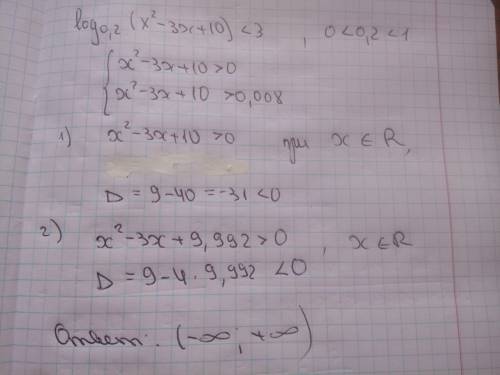 log₀,₂ (x²-3x+10) < 3 , 0<0,2<1
{ x²-3x+10>0
x²-3x+10 >0,008
1) x²-3x+10>0 при x∈R,
D = 9-40 = -31<0
2) x²-3x+9,992>0 , x∈R
D = 9-4·9,992 <0
Ответ: (-∞; +∞)